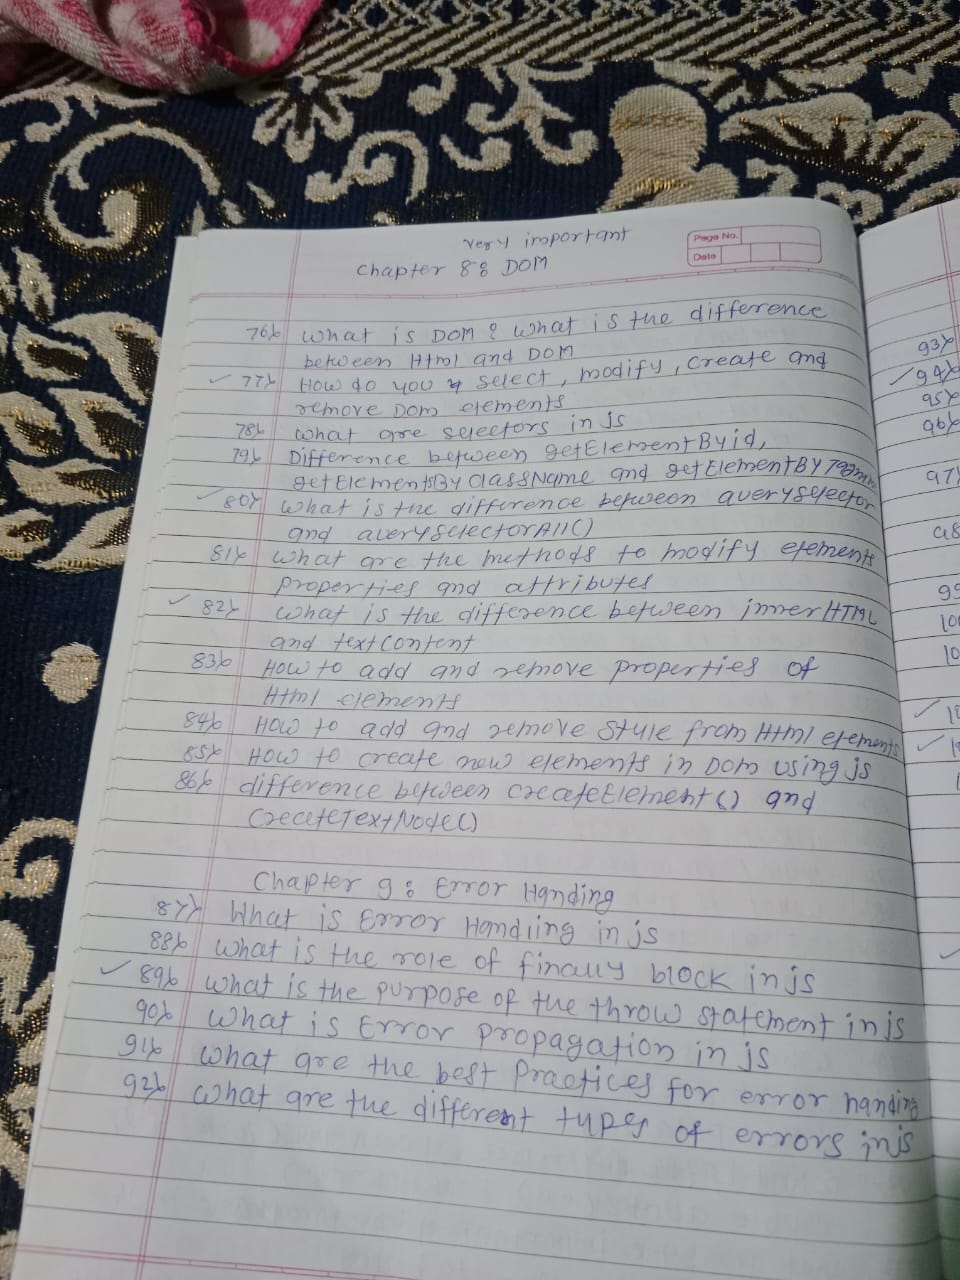 very important
Page No.
Date
Chapter 8: DOM
76) What is DOM? What is the difference
between Html and DOM
77) How do you select, modify, create and
remove Dom elements
78) What are selectors in js
79) Difference between getElementByid,
getElementsByClassName and getElementBy
80) What is the difference between queryselector
and queryselectorAll()
81) What are the methods to modify elements
properties and attributes
82) What is the difference between innerHTML
and textContent
83) How to add and remove properties of
Html elements
84) How to add and remove style from Html elements
85) How to create new elements in Dom using js
86) difference between createElement() and
CreateTextNode()
Chapter 9: Error Handing
87) What is Error Handling in js
88) What is the role of finally block in js
89) What is the purpose of the throw statement in js
90) What is Error propagation in js
91) What are the best practices for error handing
92) What are the different types of errors in js
93)
94)
95)
96)
97)